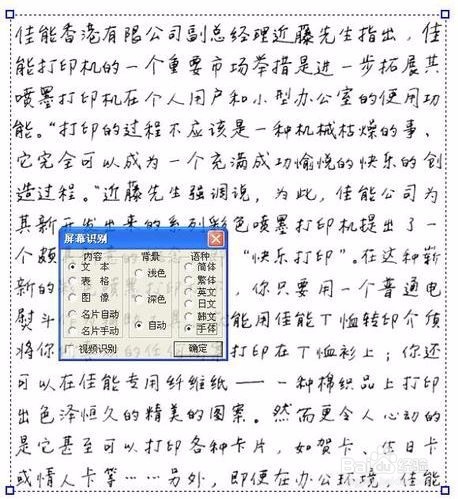 佳能香港有限公司副总经理近藤先生指出，佳
能打印机的一个重要市场举措是进一步拓展其
喷墨打印机在个人用户和小型办公室的使用功
能。“打印的过程不应该是一种机械枯燥的事，
它完全可以成为一个充满成功愉悦的快乐的创
造过程。”近藤先生强调说，为此，佳能公司为
其新开发出来的系列彩色喷墨打印机提出了一
个颇 “快乐打印”。在这种崭
新的 你只要用一个普通电
熨斗 能用佳能T恤转印介质
将你 打印在T恤衫上；你还
可以在佳能专用纤维纸——一种棉织品上打印
出色泽恒久的精美的图案。然而更令人心动的
是它甚至可以打印各种卡片，如贺卡、生日卡
或情人卡等……另外，即便在办公环境，佳能
屏幕识别
内容 背景 语种
文 本 浅色 简体
表 格 繁体
图 像 深色 英文
名片自动 日文
名片手动 自动 韩文
手体
视频识别 确定